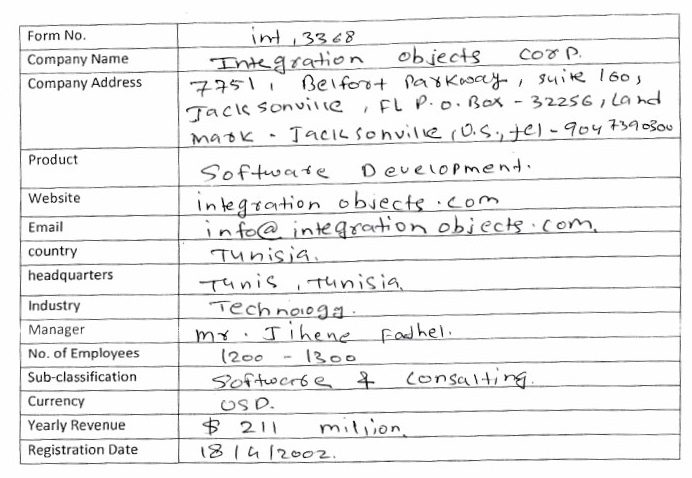 Form No. int, 3368
Company Name Integration objects corp.
Company Address 7751, Belfort Parkway, suite 160,
Jacksonville, FL P.O. Box - 32256, Land
mark - Jacksonville, U.S., tel - 904 7390300
Product Software Development.
Website integration objects.com
Email info@integration objects.com.
country Tunisia.
headquarters Tunis, Tunisia.
Industry Technology.
Manager mr. Jihene Fadhel.
No. of Employees 1200 - 1300
Sub-classification Software & Consalting.
Currency USD.
Yearly Revenue $ 211 million.
Registration Date 18/4/2002.